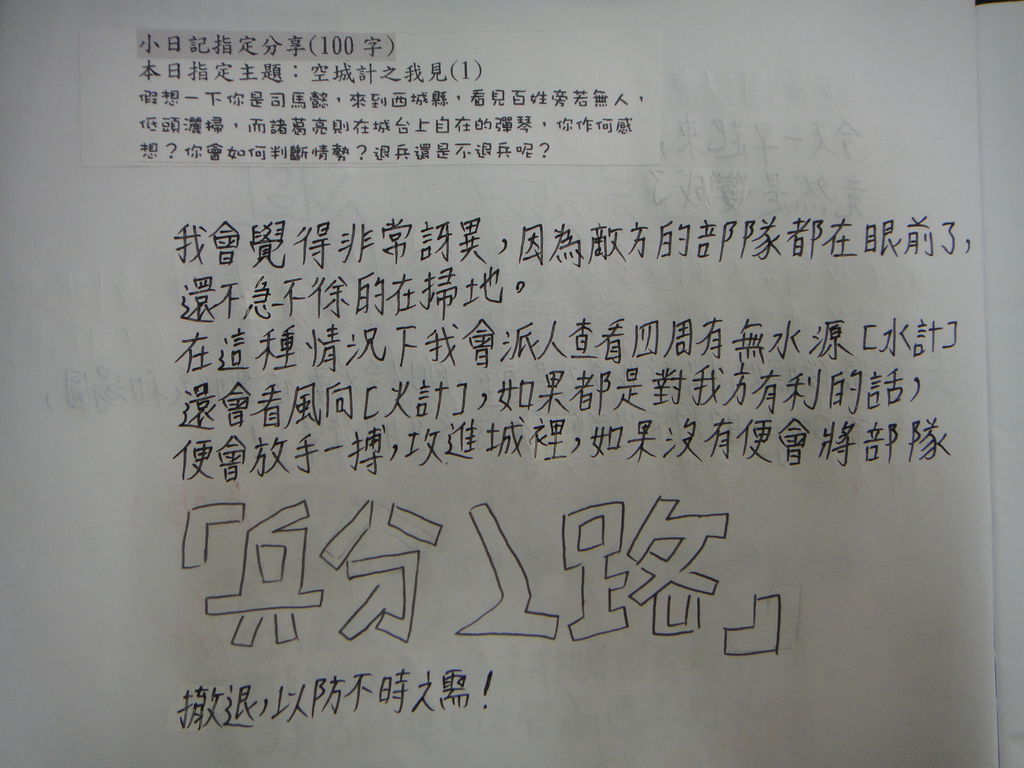 小日記指定分享(100字)
本日指定主題：空城計之我見(1)
假想一下你是司馬懿，來到西城縣，看見百姓旁若無人，
低頭灑掃，而諸葛亮則在城台上自在的彈琴，你作何感
想？你會如何判斷情勢？退兵還是不退兵呢？
我會覺得非常訝異，因為敵方的部隊都在眼前了，
還不急不徐的在掃地。
在這種情況下我會派人查看四周有無水源[水計]
還會看風向[火計]，如果都是對我方有利的話，
便會放手一搏，攻進城裡，如果沒有便會將部隊
「兵分上路」
撤退，以防不時之需！